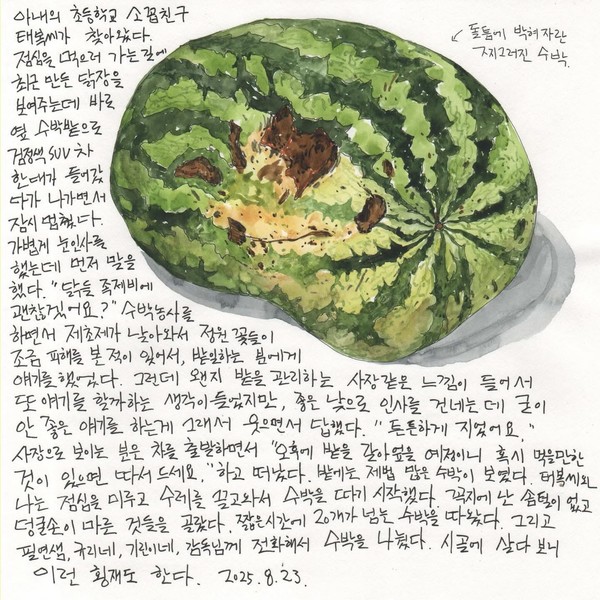 아내의 초등학교 소꿉친구
태복씨가 찾아왔다.
점심을 먹으러 가는길에
최근 만든 닭장을
보여주는데 바로
옆 수박밭으로
검정색 SUV 차
한대가 들어갔
다가 나가면서
잠시 멈췄다.
가볍게 눈인사를
했는데 먼저 말을
했다. "닭들 족제비에
괜찮겠어요?" 수박농사를
하면서 제초제가 날아와서 정원 꽃들이
조금 피해를 본 적이 있어서, 밭일하는 분에게
얘기를 했었다. 그런데 왠지 밭을 관리하는 사장같은 느낌이 들어서
또 얘기를 할까하는 생각이 들었지만, 좋은 낯으로 인사를 건네는데 굳이
안 좋은 얘기를 하는게 그래서 웃으면서 답했다. "튼튼하게 지었어요."
사장으로 보이는 분은 차를 출발하면서 "오후에 밭을 갈아엎을 예정이니 혹시 먹을만한
것이 있으면 따서 드세요."하고 떠났다. 밭에는 제법 많은 수박이 보였다. 태복씨와
나는 점심을 미루고 수레를 끌고와서 수박을 따기 시작했다. 꼭지에 난 솜털이 없고
덩굴손이 마른 것들을 골랐다. 짧은시간에 20개가 넘는 수박을 따왔다. 그리고
필연샘, 규리네, 기린이네, 감독님께 전화해서 수박을 나눴다. 시골에 살다 보니
이런 횡재도 한다. 2025.8.23.
돌틈에 박혀자란
찌그러진 수박.